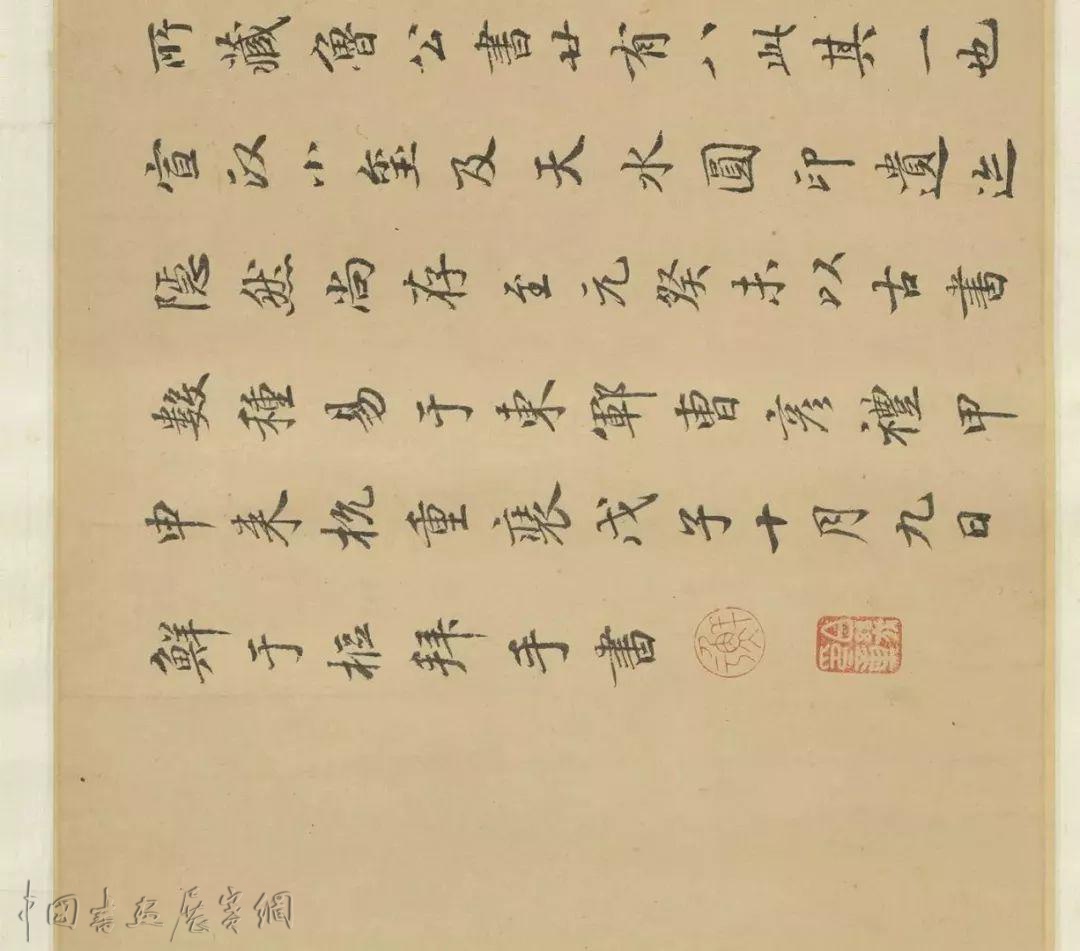 所藏魯公書廿有八此其一也
宣政小璽及天水圓印遺迹
隱然尚存至元癸未以古書
數種易于東鄆曹彦禮甲
申来杭重裝戊子十月九日
鮮于樞拜手書
中国書画展賽網